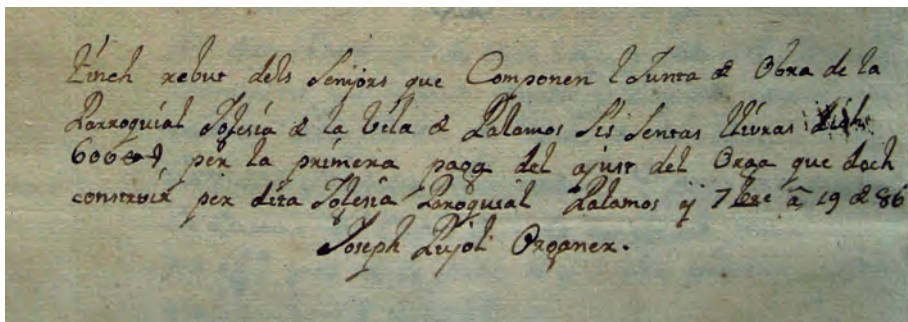 Tinch rebut dels Senyors que Componen l Junta de Obra de la
Parroquial Iglesia de la Vila de Palamos Sis Sentas Lliuras
600 per la primera paga del ajust del Orga que dech
construir per dita Iglesia Paroquial Palamos y 7bre a 19 de 86
Joseph Pujol Organer.